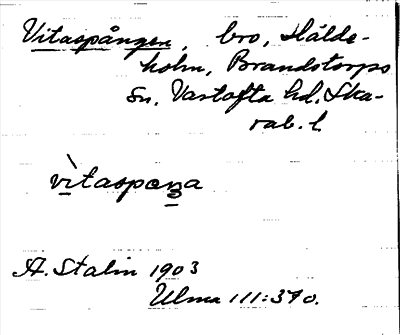 Vitaspången, bro, Hålde-
holm, Brandstorps
sn, Vartofta hd. Ska-
rab. l
vìtaspaŋa
A. Stalin 1903
Ulma 111:370.